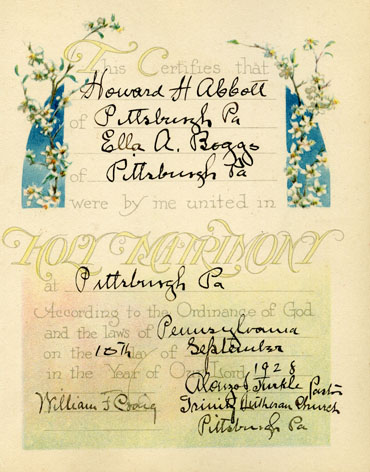 This Certifies that
Howard H Abbott
of Pittsburgh Pa
Ella A. Boggs
of Pittsburgh Pa
were by me united in
HOLY MATRIMONY
at Pittsburgh Pa
According to the Ordinance of God
and the laws of Pennsylvania
on the 10th day of September
in the Year of Our Lord 1928
Alonzo J Turkle Pastor
William F Craig Trinity Lutheran Church
Pittsburgh Pa